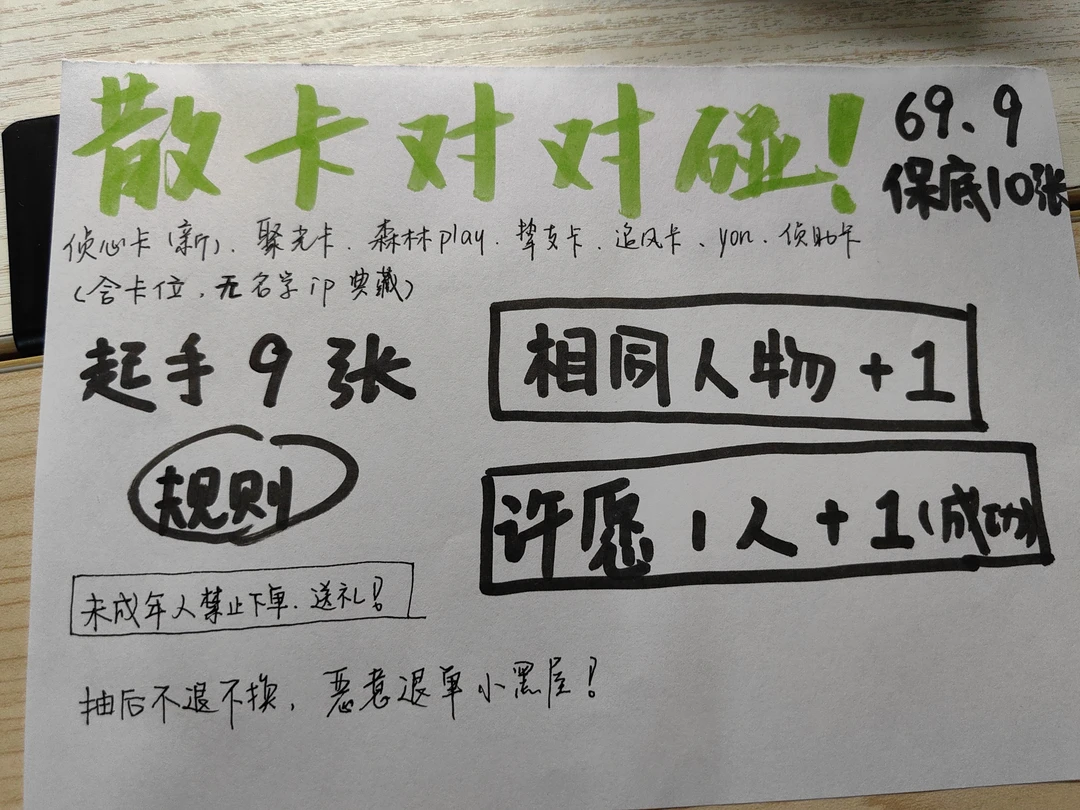 散卡对对碰!
69.9
保底10张
侦心卡(新)、聚光卡、森林play、挚友卡、追风卡、yon、侦助卡
(含卡位,无名学ip典藏)
起手9张
相同人物+1
规则
许愿1人+1(成功)
未成年人禁止下单、送礼!
抽后不退不换,恶意退单小黑屋!